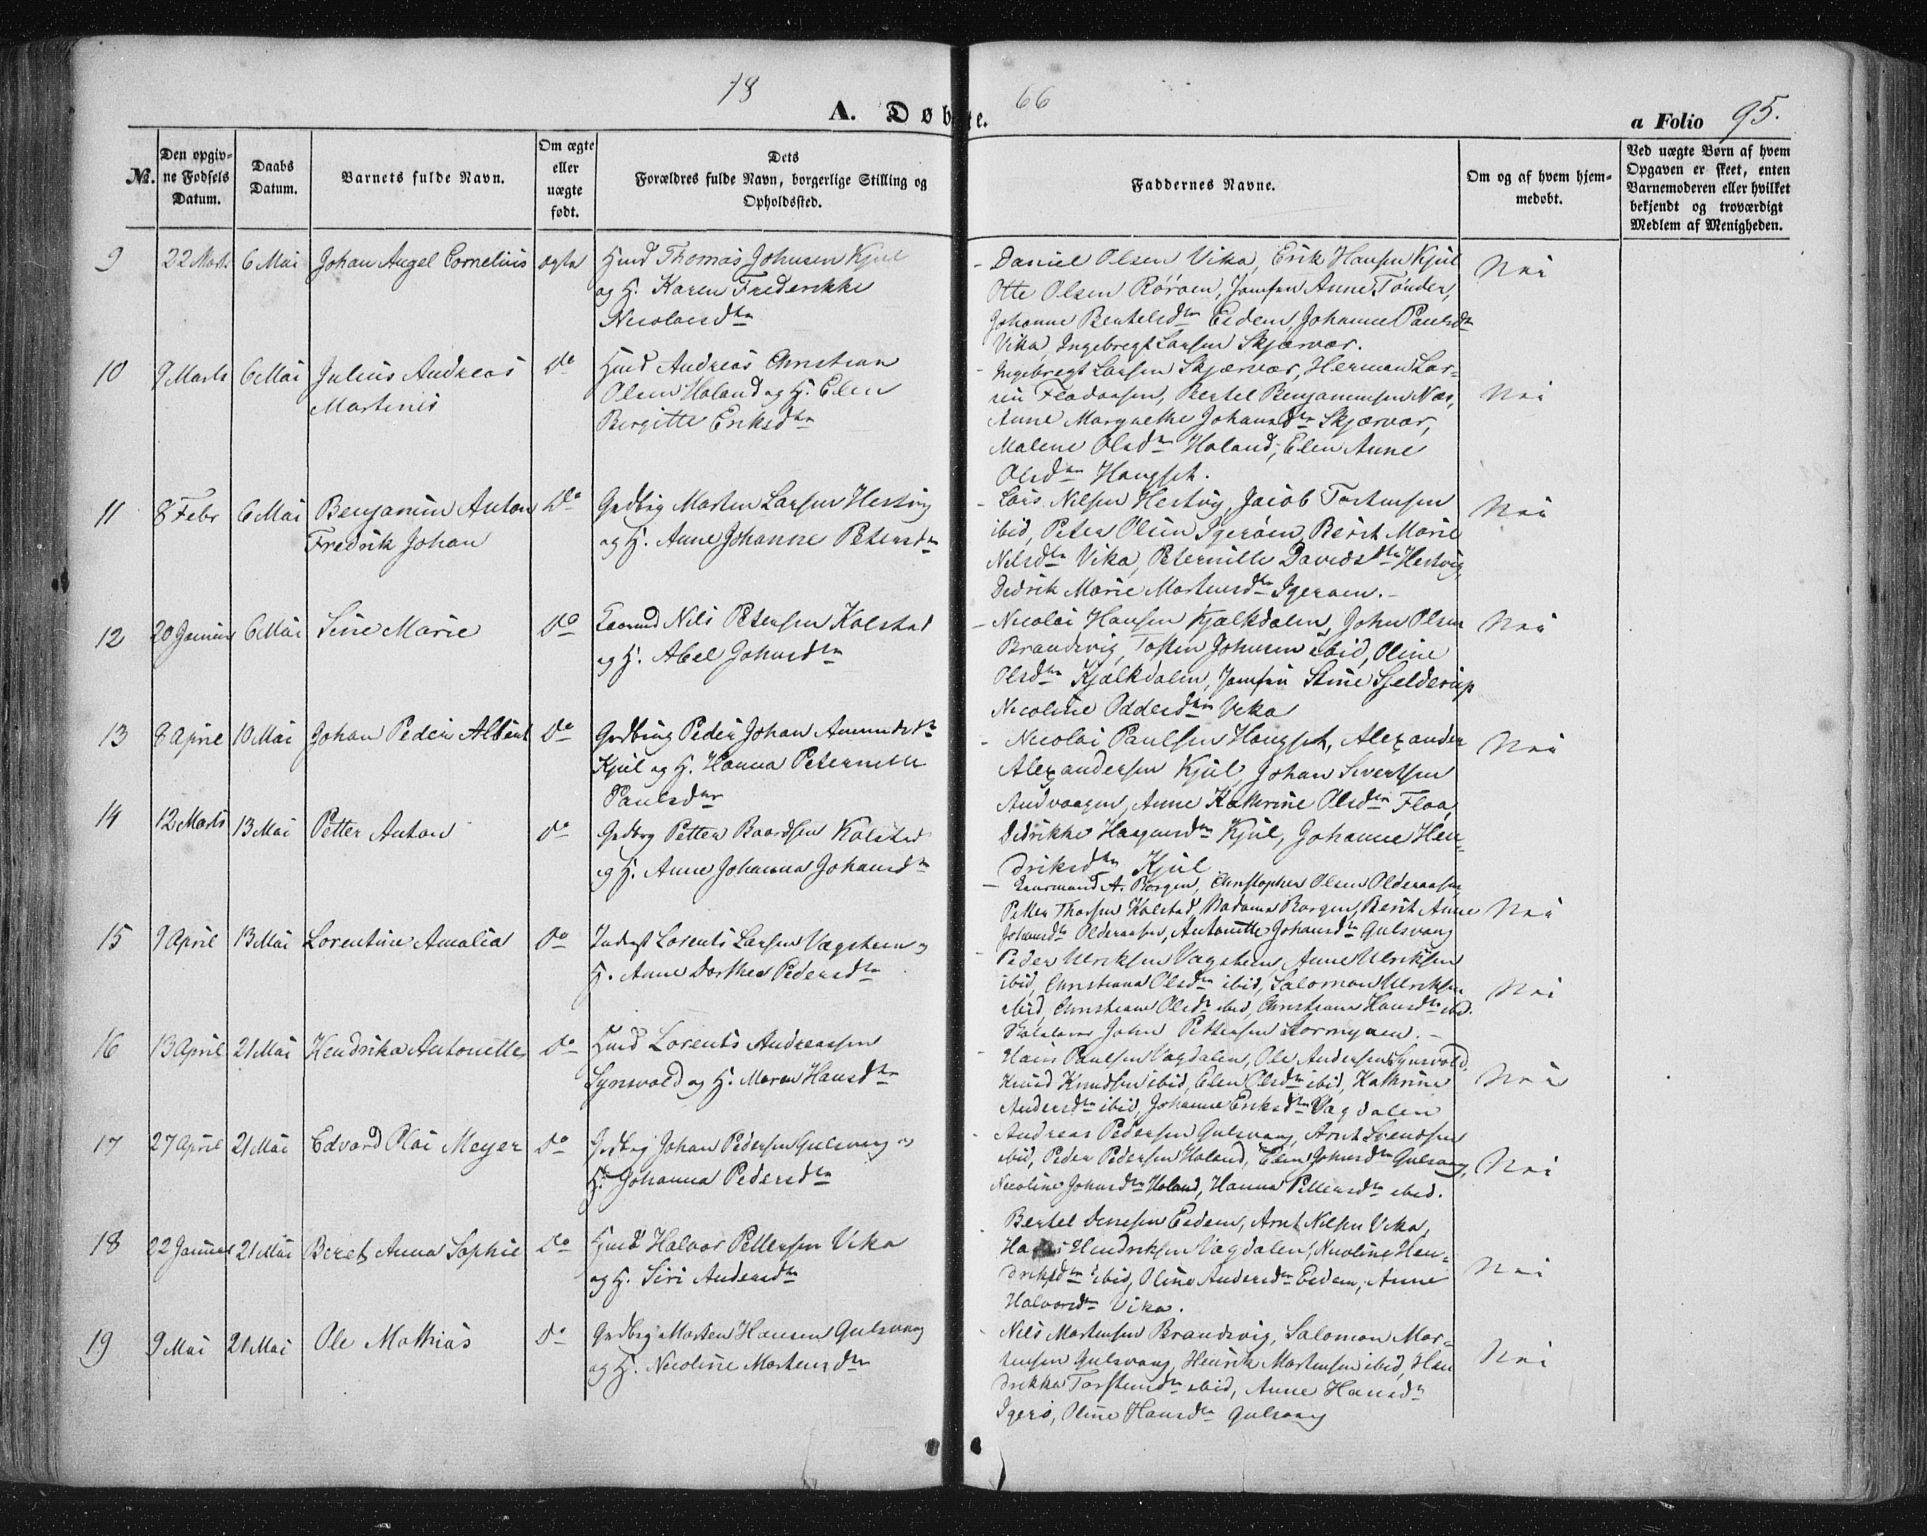 18 66
A. Døbte.
a Folio 95.
No.
Den opgivne Fødsels Datum.
Daabs Datum.
Barnets fulde Navn.
Om ægte eller uægte født.
Dets
Forældres fulde Navn, borgerlige Stilling og
Opholdssted.
Faddernes Navne.
Om og af hvem hjemmedøbt.
Ved uægte Børn af hvem
Opgaven er skeet, enten
Barnemoderen eller hvilket
bekjendt og troværdigt
Medlem af Menigheden.
9 22 Mart. 6 Mai Johan Angel Cornelius ægte Huusd Thomas Johnsen Kjul
og H. Karen Frederikke
Nicolaisdtr
Daniel Olsen Vika, Erik Hansen Kjul
Otte Olsen Rørøen, Jomfru Anne Tønder,
Johanne Bertelsdtr Eidem, Johanne Paulsdtr
Vika, Ingebregt Larsen Skjærvær.
Nei
10 9 Marts 6 Mai Julius Andreas do Huusd Andreas Christian
Martinis
Olsen Holand og H. Elen
Birgitte Eriksdtr
Ingebregt Larsen Skjærvær, Herman Lar-
sen Flodaasen, Bertel Benjaminsen Næs,
Anne Margrethe Johansdtr Skjærvær,
Malene Olsdtr Holand, Elen Anne
Olsdtr Haugset.
Nei
11 8 Febr 6 Mai Benjamin Anton Do Grdbrg Morten Larsen Hestvig
Fredrik Johan
og H. Anne Johanne Petersdtr
Lars Nilsen Hestvig, Jacob Torstensen
ibid, Peter Olsen Igerøen, Berit Marie
Nilsdtr Vika, Peternille Davidsdtr Hestvig,
Didrik Marie Mortensdtr Igerøen.
Nei
12 20 Januar 6 Mai Sine Marie do Nils Petersen Kolstad
og H. Abel Johnsdtr
Nicolai Hansen Kjælkdalen, John Olsen
Brandsvig, Tosten Johnsen ibid, Oline
Olsdtr Kjælkdalen, Jomfru Stine Sjelderup
Nicoline Oddesdtr Vika
Nei
13 8 April 10 Mai Johan Peder Albert do Grdbrug Peder Johan Amunds.
Kjul og H. Hanna Peternille
Paulsdtr
Nicolai Paulsen Haugset, Alexander
Alexandersen Kjul, Johan Sivertsen
Andvaagen, Anne Kathrine Olsdtr Floa,
Didrikke Haagensdtr Kjul, Johanne Hen-
driksdtr Kjul
Nei
14 12 Marts 13 Mai Petter Anton do Grdbrg Petter Baardsen Kolstad
og H. Anne Johanna Johansdtr
Lensmand A. Borgen, Christopher Olsen Olderaasen,
Petter Thorsen Kolstad, Madame Borgen, Berit Anne
Johansdtr Olderaasen, Antonette Johansdtr Gulsvaag
Nei
15 9 April 13 Mai Lorentine Amalia do Inderst Lorents Larsen Vægsteen og
H. Anne Dorthea Pedersdtr
Peder Ulriksen Vægsteen, Anne Ulriksen
ibid, Christiana Olsdtr ibid, Salomon Ulriksen
ibid, Christiane Olsdtr ibid, Christiane Hansdtr ibd.
John Pettersen Stormyren.
Nei
16 13 April 21 Mai Hendrika Antonette do Huusd Lorents Andreassen
Synsvold og H. Maren Hansdtr
Hans Paulsen Vægdalen, Ole Andersen Synsvold,
Knud Knudsen ibid, Elen Olsdtr ibid, Kathrine
Andersdtr ibid, Johanne Eriksdtr Vægdalen
Nei
17 27 April 21 Mai Edvard Olai Meyer do Grdbrg Johan Pedersen Gulsvaag og
H. Johanna Pedersdtr
Andreas Pedersen Gulsvaag, Arnt Svendsen
ibid, Peder Pedersen Holand, Elen Johnsdtr Gulsvaag,
Nicoline Johnsdtr Holand, Hanna Pettersdtr ibid.
Nei
18 22 Januar 21 Mai Beret Anna Sophie do Huusd Halvor Pettersen Vika
og H. Siri Andersdtr
Bertel Densen Eidem, Arnt Nilsen Vika,
Hans Hendriksen Vægdalen, Nicoline Hen-
driksdtr ibid, Oline Andersdtr Eidem, Anne
Halvorsdtr Vika.
Nei
19 9 Mai 21 Mai Ole Mathias do Grdbrg Morten Hansen Gulsvaag
og H. Nicoline Mortensdtr
Nils Mortensen Brandsvig, Salomon Mor-
tensen Gulsvaag, Henrik Mortensen ibid, Hen
drikka Torstensdtr ibid, Anne Hansdtr
Igerø, Oline Hansdtr Gulsvaag
Nei